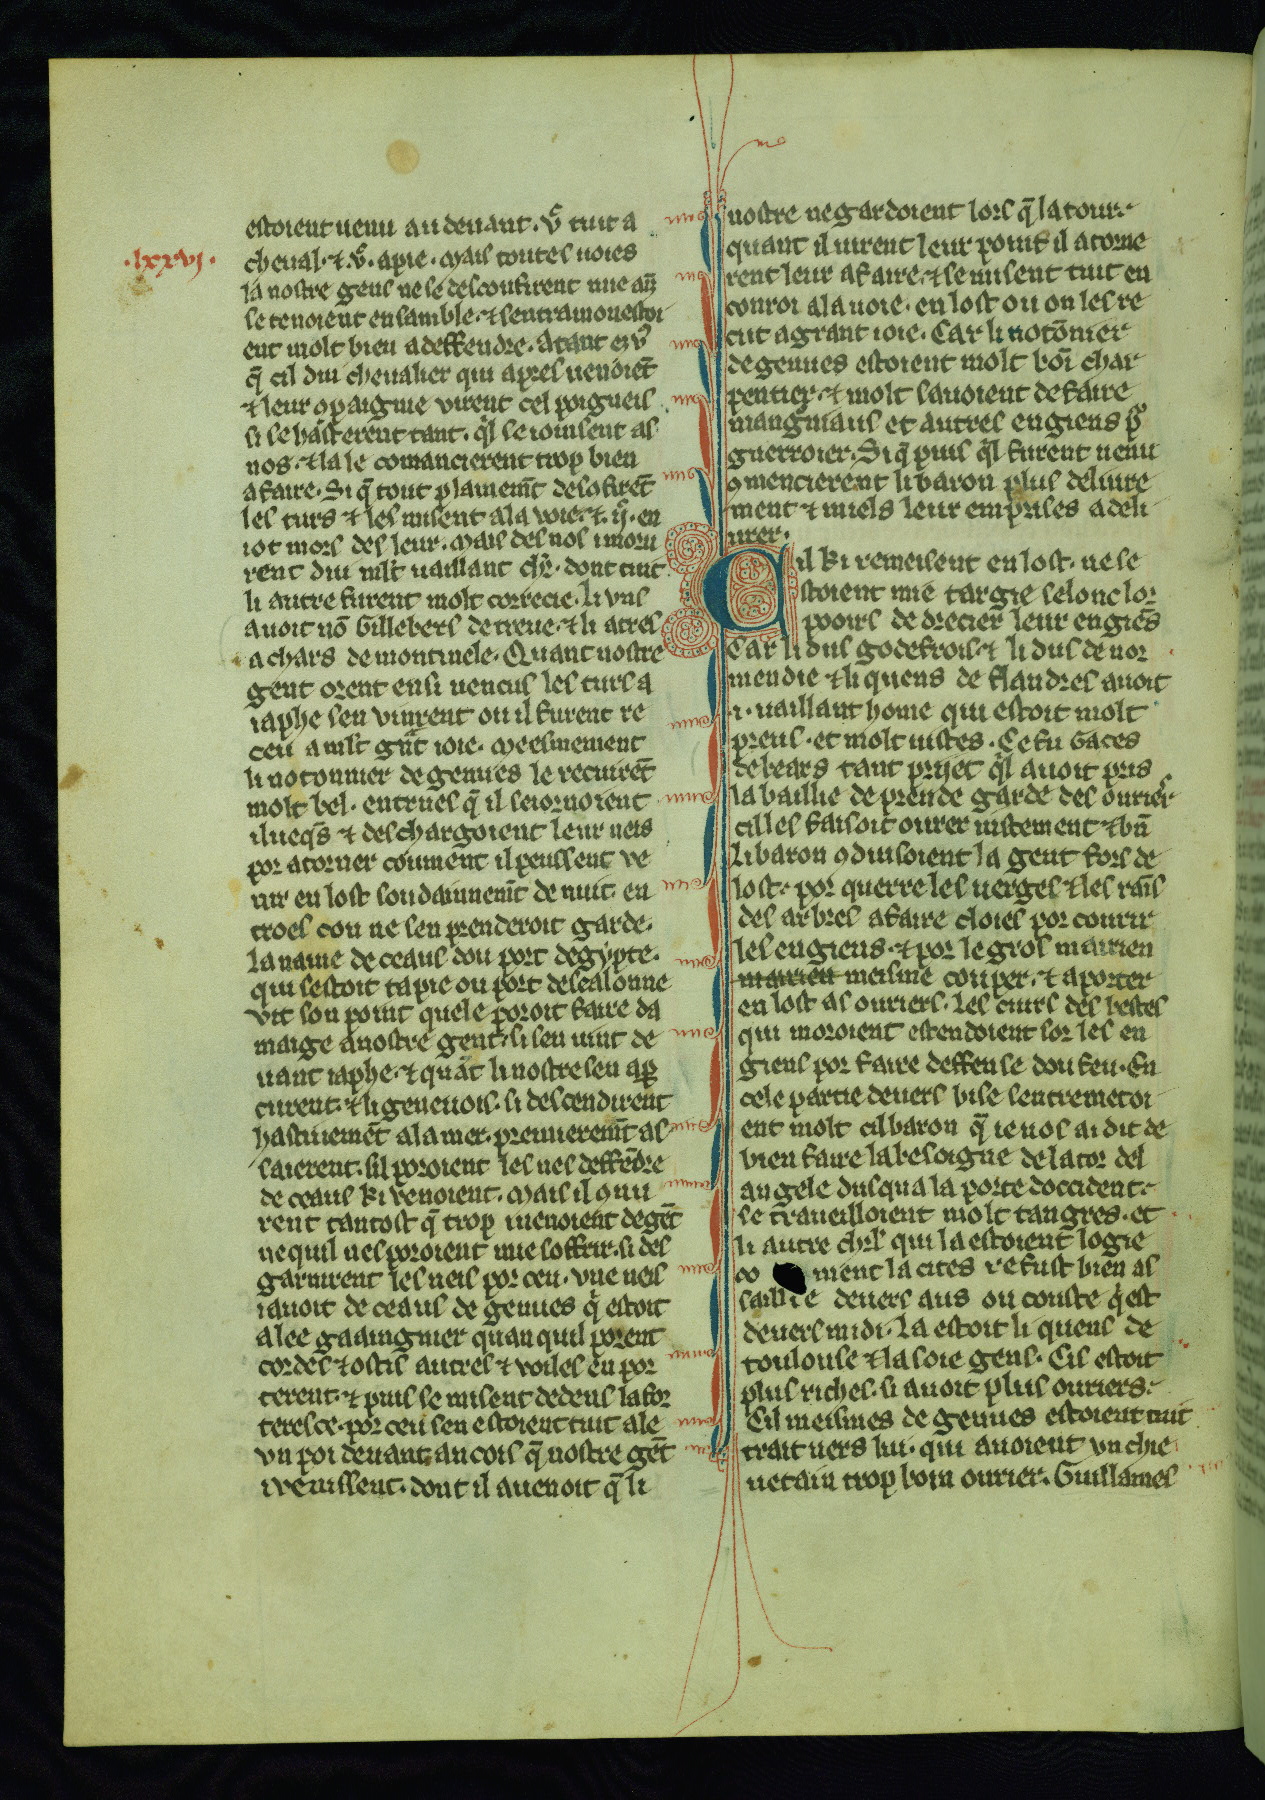 estoient uenu au deuant. v᷎c tuit a
cheual. ⁊ .v᷎c. a pie. Mais toutes uoies
.lxxvj.
la nostre gens ne se desconfirent mie ain̄
se tenoient ensamble. ⁊ sentramonestoi
ent molt bien a deffendre. Atant eiv᷎
q̄ cil dui cheualier qui apres uenoiēt
⁊ leur ꝯpaignie virent cel poigneis
si se hasterent tant. qͥl se ioinsent as
nos. ⁊ la le comancierent trop bien
a faire. Si q̄ tout plainemt̄ desꝯfirēt
les turs ⁊ les misent a la voie. ⁊ .ij᷎c. en
iot mors des leur. Mais des nos i moru
rent dui ml̄t uaillant chr̄. dont tuit
li autre furent molt correcie. Li vns
auoit nō Gillebers de treue. ⁊ li atres
achars de montmele. Quant nostre
gent orent ensi uencus les turs a
iaphe sen vinrent ou il furent re
ceu a ml̄t grāt ioie. Meesmement
li notonnier de genues le recuirēt
molt bel. entrues q̄ il seiornoient
iluequs̄ ⁊ deschargoient leur neis
por atorner coument il peussent ve
nir en lost soudainnemt̄ de nuit. en
troes con ne sen prenderoit garde.
La nauie de ceaus dou port degypte.
qui sestoit tapie ou port desealonne
vit son point quele poroit faire da
maige a nostre gent. si sen uint de
uant iaphe. ⁊ quāt li nostre sen aꝑ
curent. ⁊ li geneuois. si descendirent
hastiuemēt a la mer. premieremt̄ as
saierent. sil poroient les nes deffēdre
de ceaus ki venoient. Mais il ꝯnu
rent tantost q̄ trop i uenoient de gēt
ne quil nes poroient mie soffrir. si des
garnirent les neis por ceu. vne neis
iauoit de ceaus de genues q̄ estoit
alee gaaingnier quan quil porent
cordes ⁊ ostis autres ⁊ voiles en por
terent. ⁊ puis se misent dedens la for
teresce. por ceu sen estoient tuit ale
vn poi deuant. ancois q̄ nostre gēt
i venissent. dont il auenoit q̄ li
nostre ne gardoient lors q̄ la tour.
quant il uirent leur point il atorne
rent leur afaire. ⁊ se misent tuit en
conroi a la uoie. en lost ou on les re
cut a grant ioie. Car li notōnier
de genues estoient molt boī char
pentier. ⁊ molt sauoient de faire
mangniaus et autres engiens pͦ
guerroier. Si q̄ puis qͥl furent uenu
ꝯmencierent li baron plus deliure
ment ⁊ miels leur emprises a deli
urer.
Cil ki remeisent en lost. ne se
stoient mie targie selonc lor
pooirs de drecier leur engiēs
Car li dus godefrois. ⁊ li dus de nor
mendie ⁊ li quens de flandres auoit
.i. uaillant home qui estoit molt
preus. et molt iustes. Ce fu Gaces
de bears tant priiet qͥl auoit pris
la baillie de prende garde des ourier
cil les faisoit ourer iustement ⁊ bn̄
Li baron ꝯduisoient la gent fors de
lost. por querre les uerges ⁊ les rais̄
des arbres a faire cloies por courir
les engiens. ⁊ por le gros mairien
mairien meisme couper. ⁊ aporter
en lost as ouriers. Les cuirs des bestes
qui moroient estendoient sor les en
giens por faire deffense dou feu. En
cele partie deuers bise sentremetoi
ent molt cil baron q̄ ie uos ai dit de
bien faire la besoigne de la tor del
angele dusqua la porte doccident.
se traueilloient molt tangres. et
li autre chrs̄ qui la estoient logie
co ment la cites refust bien as
saillie deuers aus ou couste q̄ est
deuers midi. La estoit li quens de
toulouse ⁊ la soie gens. Cis estoit
plus riches. si auoit plus ouriers.
Cil meismes de genues estoient tuit
trait uers lui. qui auoient vn chie
uetain trop boin ourier. Guillames